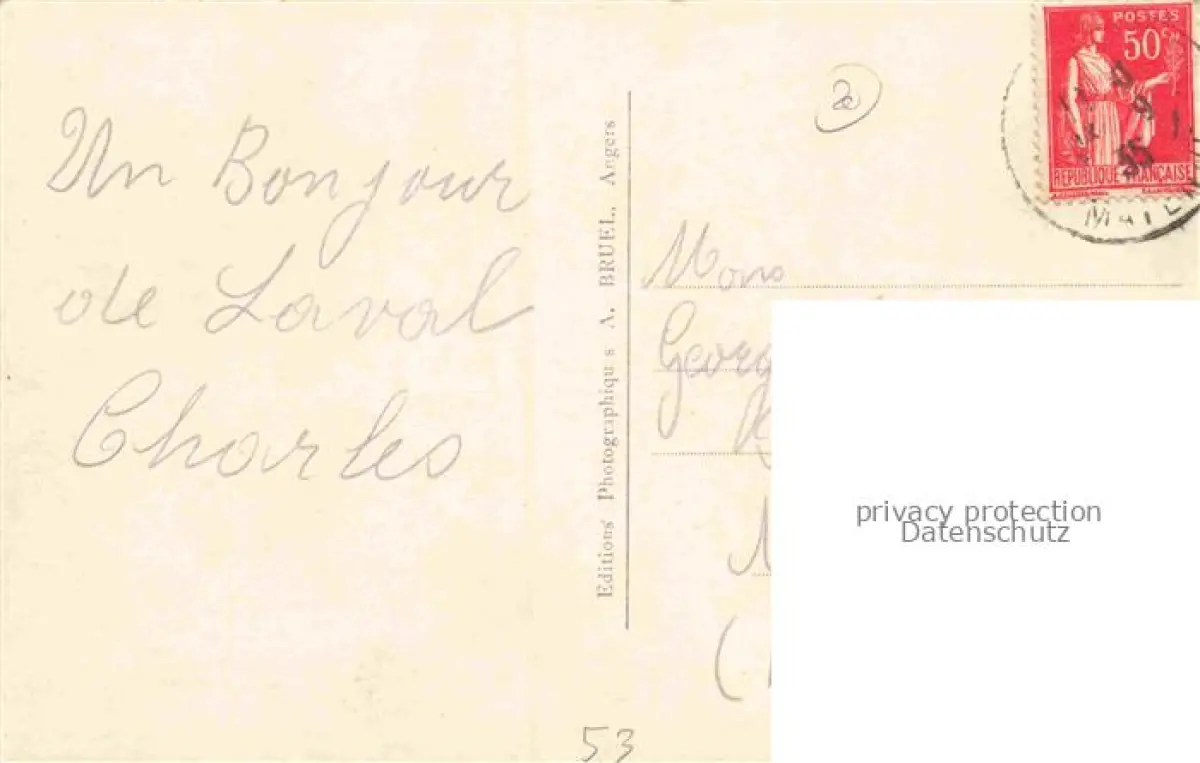 Un Bonjour
de Laval
Charles
Editions Photographiques A. BRUEL, Angers
20
POSTES
50c
35
REPUBLIQUE FRANÇAISE
Mons
Georg
privacy protection
Datenschutz
53